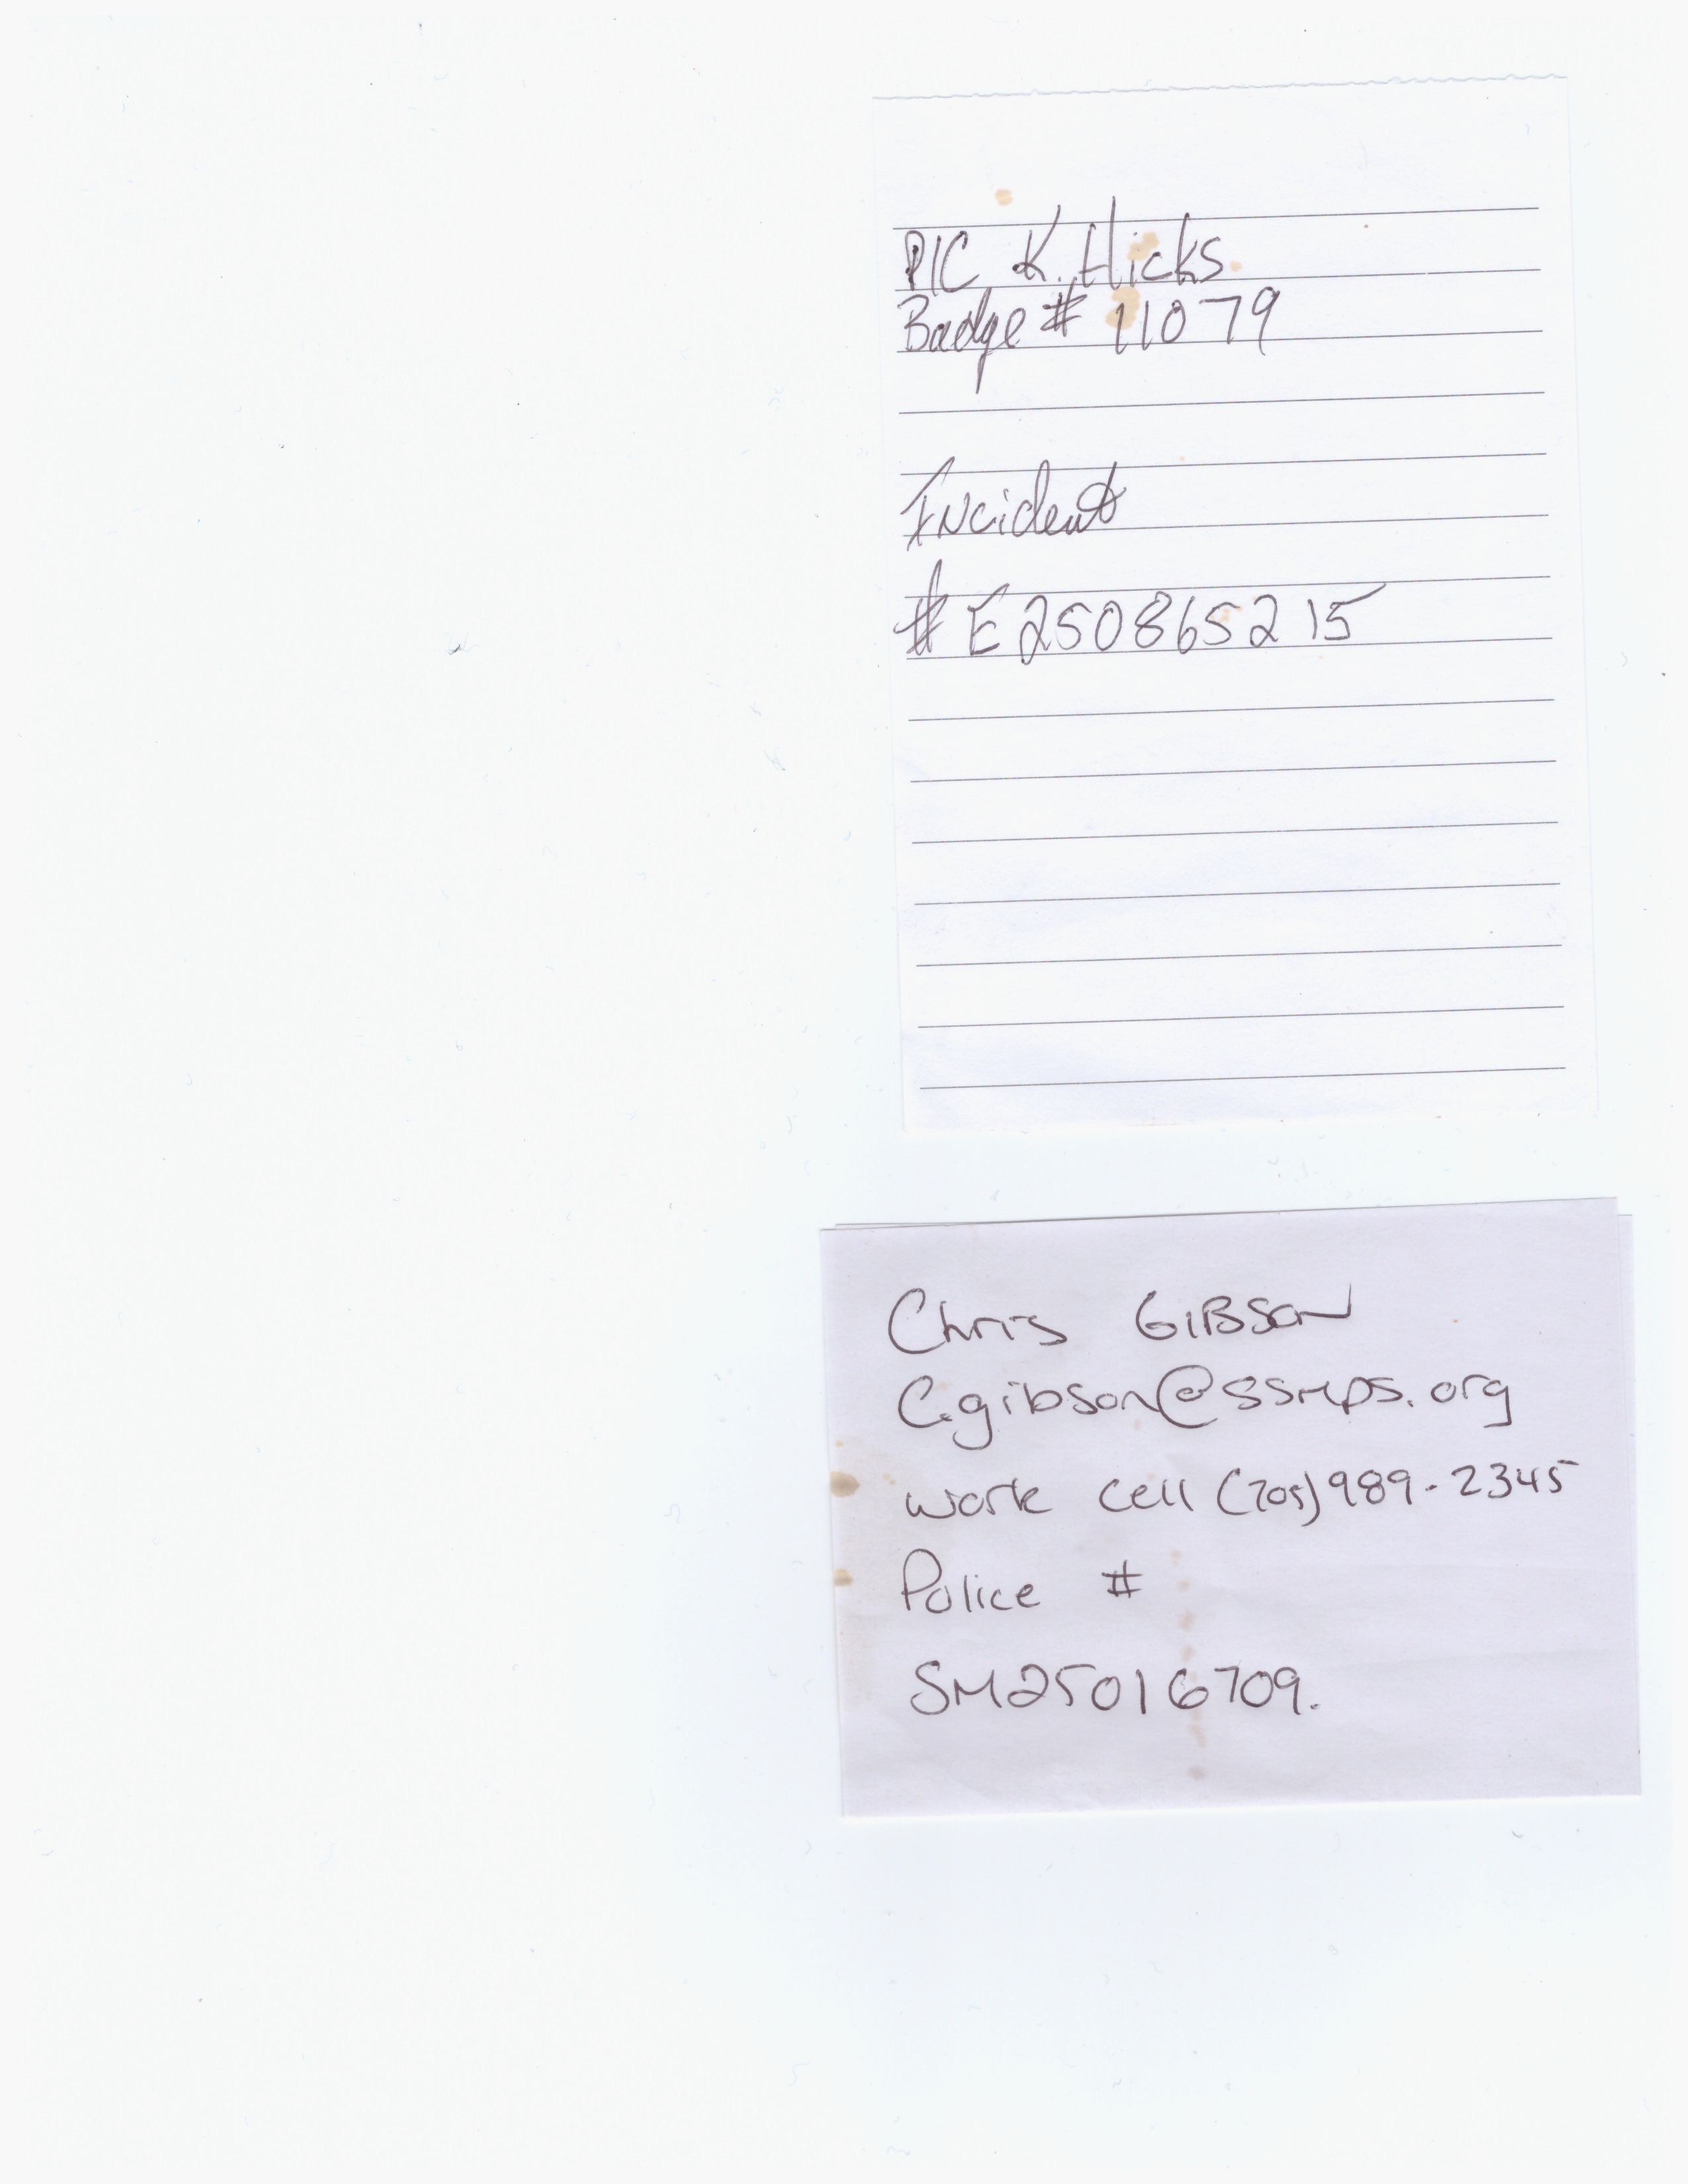 P/C K. Hicks
Badge # 11079
Incident
# E250865215
Chris GIBSON
C.gibson@ssmps.org
work cell (705) 989-2345
Police #
SM25016709.